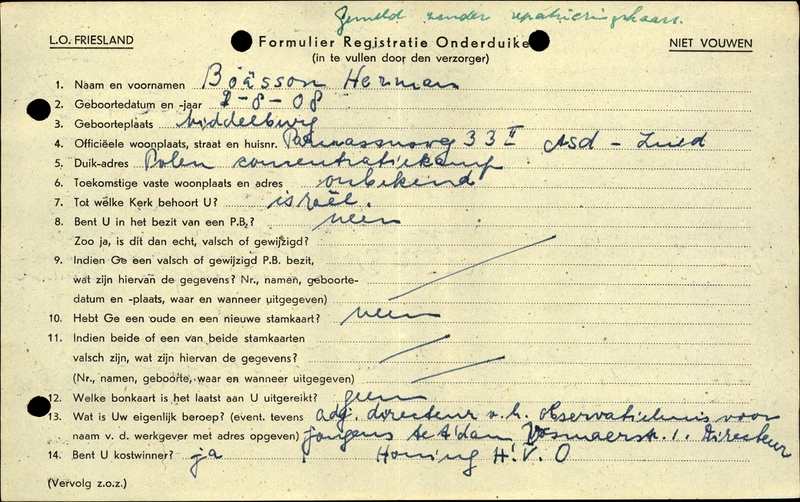 Gemeld zonder repatrieringskaart.
L.O. FRIESLAND
Formulier Registratie Onderduike
NIET VOUWEN
(in te vullen door den verzorger)
1. Naam en voornamen Boâsson Herman
2. Geboortedatum en -jaar 2-8-08
3. Geboorteplaats Middelburg
4. Officiëele woonplaats, straat en huisnr. Parnassusweg 33 II Asd - Zuid
5. Duik-adres Polen concentratiekamp
6. Toekomstige vaste woonplaats en adres onbekend
7. Tot wèlke Kerk behoort U? israël.
8. Bent U in het bezit van een P.B.? neen
Zoo ja, is dit dan echt, valsch of gewijzigd?
9. Indien Ge een valsch of gewijzigd P.B. bezit,
wat zijn hiervan de gegevens? Nr., namen, geboorte-
datum en -plaats, waar en wanneer uitgegeven)
10. Hebt Ge een oude en een nieuwe stamkaart? neen
11. Indien beide of een van beide stamkaarten
valsch zijn, wat zijn hiervan de gegevens?
(Nr., namen, geboorte, waar en wanneer uitgegeven)
12. Welke bonkaart is het laatst aan U uitgereikt? geen
13. Wat is Uw eigenlijk beroep? (event. tevens adj. directeur v. h. observatiehuis voor
naam v. d. werkgever met adres opgeven) jongens te A'dam Vosmaerstr. 1. Directeur
14. Bent U kostwinner? ja Honing H.V.O
(Vervolg z.o.z.)